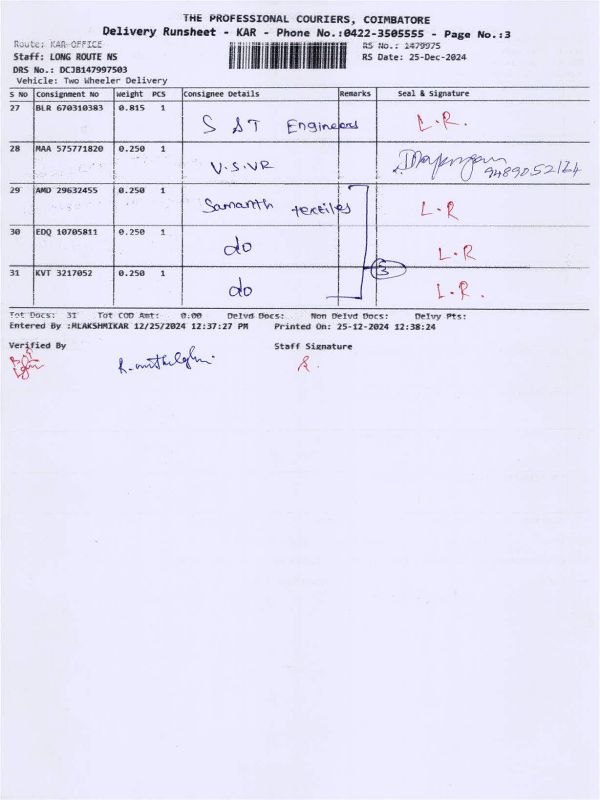 THE PROFESSIONAL COURIERS, COIMBATORE
Delivery Runsheet - KAR - Phone No.:0422-3505555 - Page No.:3
Route: KAR-OFFICE RS No.: 1479975
Staff: LONG ROUTE NS RS Date: 25-Dec-2024
DRS No.: DCJB147997503
Vehicle: Two Wheeler Delivery
S No Consignment No Weight PCS Consignee Details Remarks Seal & Signature
27 BLR 670310383 0.815 1 S S T Engineers L.R.
28 MAA 575771820 0.250 1 V.S.VR
29 AMD 29632455 0.250 1 Samanth textiles L.R
30 EDQ 10705811 0.250 1 do L.R
3
31 KVT 3217052 0.250 1 do L.R.
Tot Docs: 31 Tot COD Amt: 0.00 Delvd Docs: Non Delvd Docs: Delvy Pts:
Entered By :MLAKSHMIKAR 12/25/2024 12:37:27 PM Printed On: 25-12-2024 12:38:24
Verified By Staff Signature